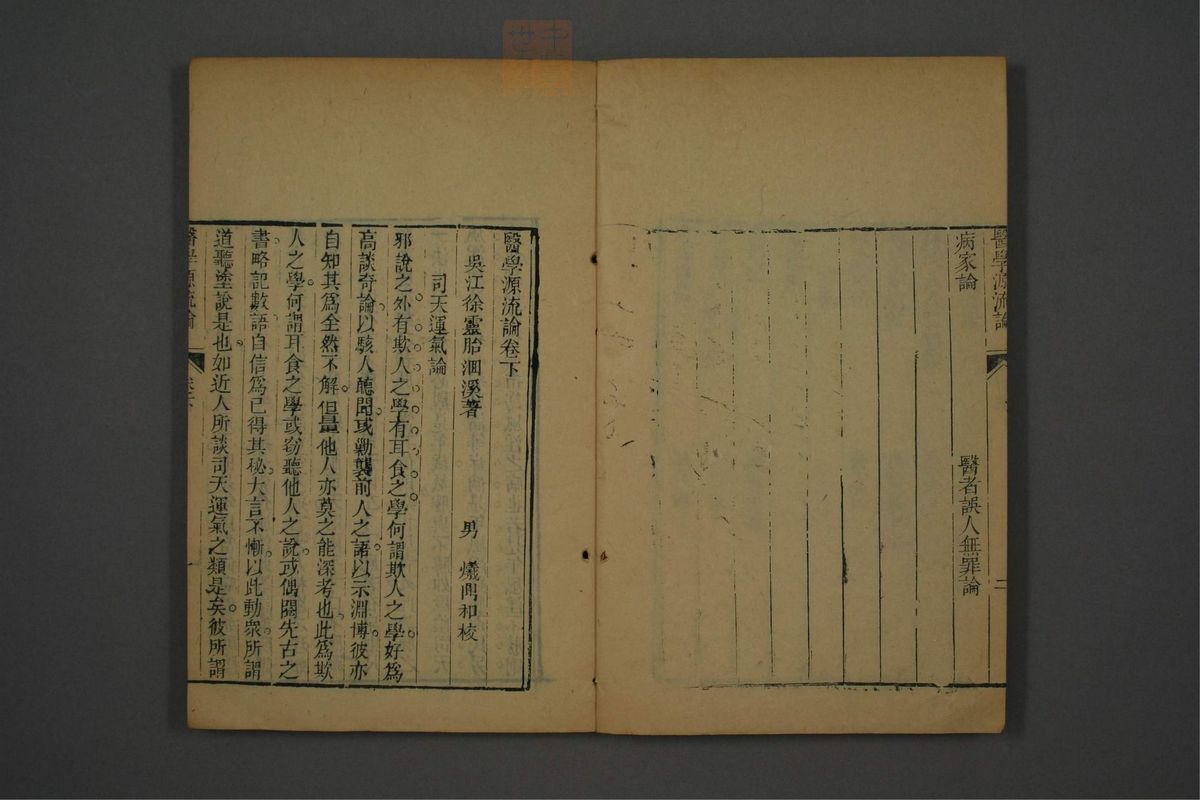 醫學源流論
二
病家論
醫者誤人無罪論
醫學源流論卷下
吳江徐靈胎洄溪著
男 爔鼎和校
司天運氣論
邪說之外有欺人之學有耳食之學何謂欺人之學好為
高談奇論以駭人聽聞或勦襲前人之語以示淵博彼亦
自知其為全然不解但量他人亦莫之能深考也此為欺
人之學何謂耳食之學或窃聽他人之說或偶閱先古之
書略記數語自信為已得其秘大言不慚以此動眾所謂
道聽塗說是也如近人所談司天運氣之類是矣彼所謂
醫學源流論
卷下
一